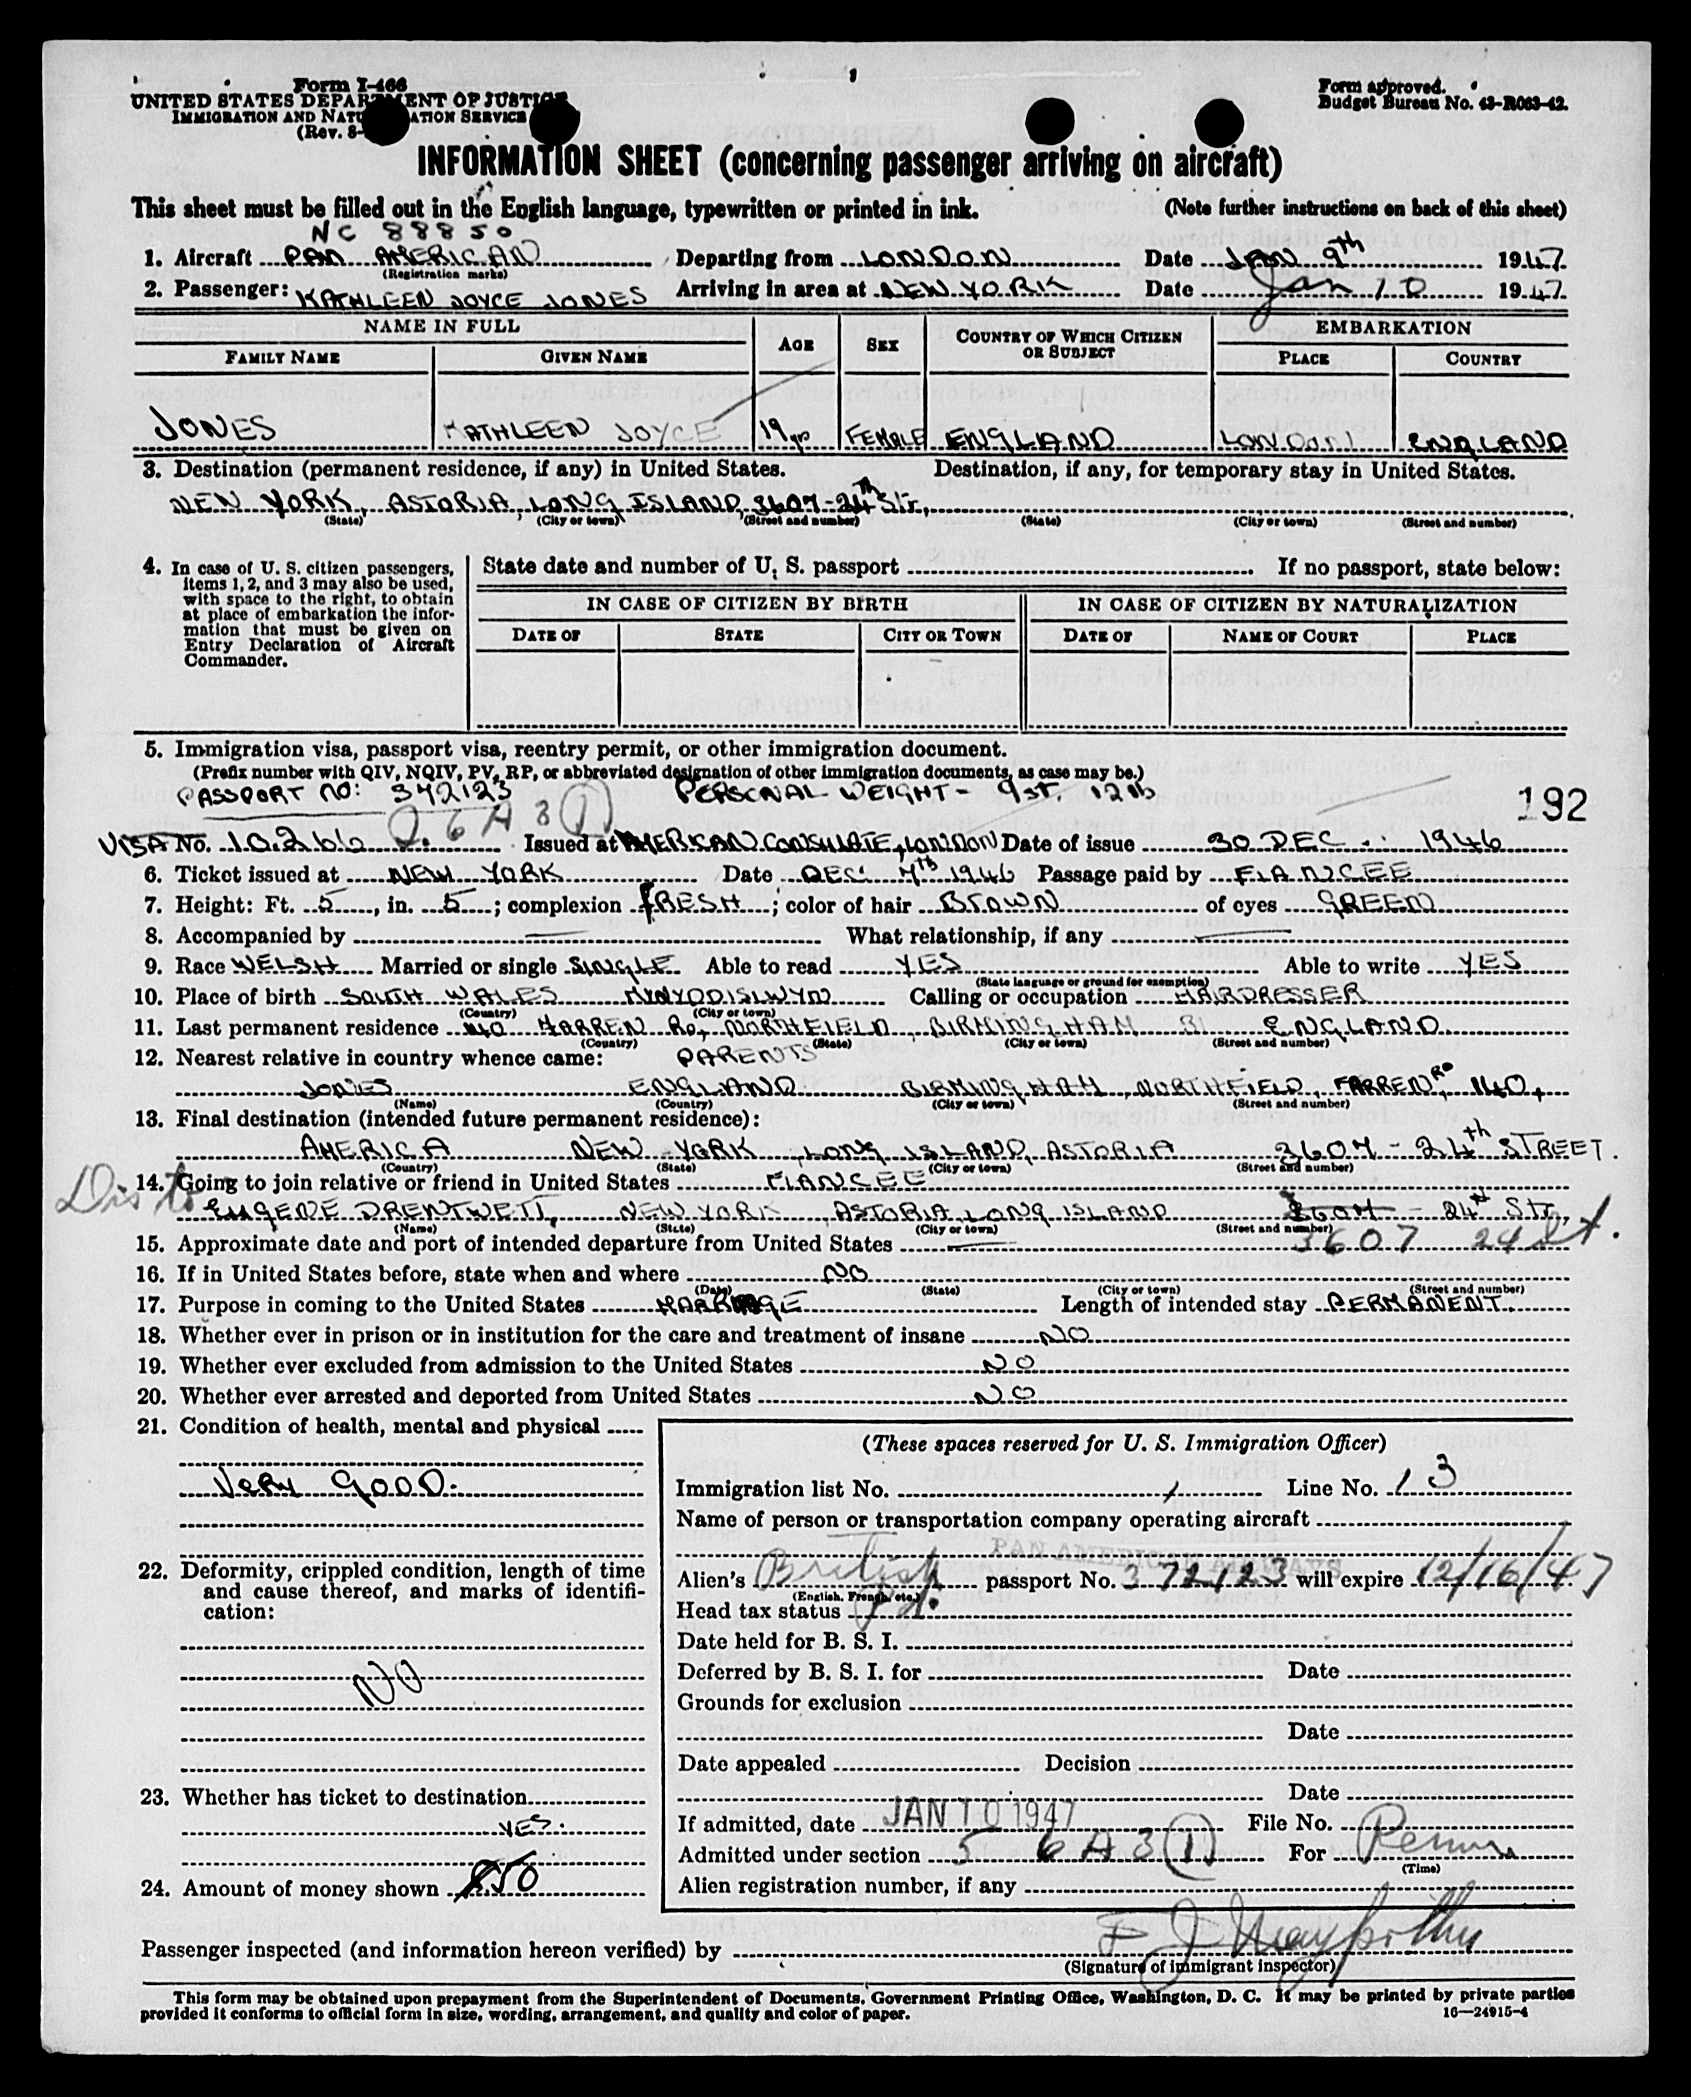 Form I-466
UNITED STATES DEPARTMENT OF JUSTICE
IMMIGRATION AND NATURALIZATION SERVICE
(Rev. 8-
Form approved.
Budget Bureau No. 43-R063-42.
INFORMATION SHEET (concerning passenger arriving on aircraft)
This sheet must be filled out in the English language, typewritten or printed in ink. (Note further instructions on back of this sheet)
NC 88850
1. Aircraft PAN AMERICAN Departing from LONDON Date JAN 9th 1947
(Registration marks)
2. Passenger: KATHLEEN JOYCE JONES Arriving in area at NEW YORK Date Jan 10 1947
NAME IN FULL AGE SEX COUNTRY OF WHICH CITIZEN OR SUBJECT EMBARKATION
FAMILY NAME GIVEN NAME PLACE COUNTRY
JONES KATHLEEN JOYCE 19 FEMALE ENGLAND LONDON ENGLAND
3. Destination (permanent residence, if any) in United States. Destination, if any, for temporary stay in United States.
NEW YORK, ASTORIA, LONG ISLAND, 3607-24th Str.
(State) (City or town) (Street and number) (State) (City or town) (Street and number)
4. In case of U. S. citizen passengers, items 1, 2, and 3 may also be used, with space to the right, to obtain at place of embarkation the information that must be given on Entry Declaration of Aircraft Commander.
State date and number of U. S. passport If no passport, state below:
IN CASE OF CITIZEN BY BIRTH IN CASE OF CITIZEN BY NATURALIZATION
DATE OF STATE CITY OR TOWN DATE OF NAME OF COURT PLACE
5. Immigration visa, passport visa, reentry permit, or other immigration document.
(Prefix number with QIV, NQIV, PV, RP, or abbreviated designation of other immigration documents, as case may be.)
PASSPORT NO: 372123 PERSONAL WEIGHT - 9st. 12lb
6A3(1) 192
VISA No. 10266 Issued at AMERICAN CONSULATE, LONDON Date of issue 30 DEC. 1946
6. Ticket issued at NEW YORK Date DEC. 7th 1946 Passage paid by FIANCEE
7. Height: Ft. 5, in. 5; complexion FRESH; color of hair BROWN of eyes GREEN
8. Accompanied by What relationship, if any
9. Race WELSH Married or single SINGLE Able to read YES Able to write YES
(State language or ground for exemption)
10. Place of birth SOUTH WALES MYNYDDISLWYN Calling or occupation HAIRDRESSER
(Country) (City or town)
11. Last permanent residence 140 FARREN Rd, NORTHFIELD, BIRMINGHAM 31 ENGLAND
(Country) (State) (City or town) (Street and number)
12. Nearest relative in country whence came: PARENTS
JONES ENGLAND BIRMINGHAM, NORTHFIELD, FARREN Rd, 140,
(Name) (Country) (City or town) (Street and number)
13. Final destination (intended future permanent residence):
AMERICA NEW YORK, LONG ISLAND, ASTORIA 3607-24th STREET.
(Country) (State) (City or town) (Street and number)
Dis to
14. Going to join relative or friend in United States FIANCEE
EUGENE DRENTWETT, NEW YORK, ASTORIA, LONG ISLAND 3607 - 24th Str.
(Name) (State) (City or town) (Street and number)
3607 24 St.
15. Approximate date and port of intended departure from United States
16. If in United States before, state when and where NO
(Date) (State) (City or town) (Street and number)
17. Purpose in coming to the United States MARRIAGE Length of intended stay PERMANENT.
18. Whether ever in prison or in institution for the care and treatment of insane NO
19. Whether ever excluded from admission to the United States NO
20. Whether ever arrested and deported from United States NO
21. Condition of health, mental and physical
VERY GOOD.
22. Deformity, crippled condition, length of time and cause thereof, and marks of identification:
NO
23. Whether has ticket to destination
YES.
24. Amount of money shown $50
(These spaces reserved for U. S. Immigration Officer)
Immigration list No. 1 Line No. 13
Name of person or transportation company operating aircraft
PAN AMERICAN AIRWAYS
Alien's British passport No. 372123 will expire 12/16/47
(English, French, etc.)
Head tax status Pd.
Date held for B. S. I.
Deferred by B. S. I. for Date
Grounds for exclusion
Date
Date appealed Decision
Date
If admitted, date JAN 10 1947 File No.
Admitted under section 5 6A3(1) For Perm
(Time)
Alien registration number, if any
Passenger inspected (and information hereon verified) by
(Signature of immigrant inspector)
This form may be obtained upon prepayment from the Superintendent of Documents, Government Printing Office, Washington, D. C. It may be printed by private parties
provided it conforms to official form in size, wording, arrangement, and quality and color of paper. 16—24915-4